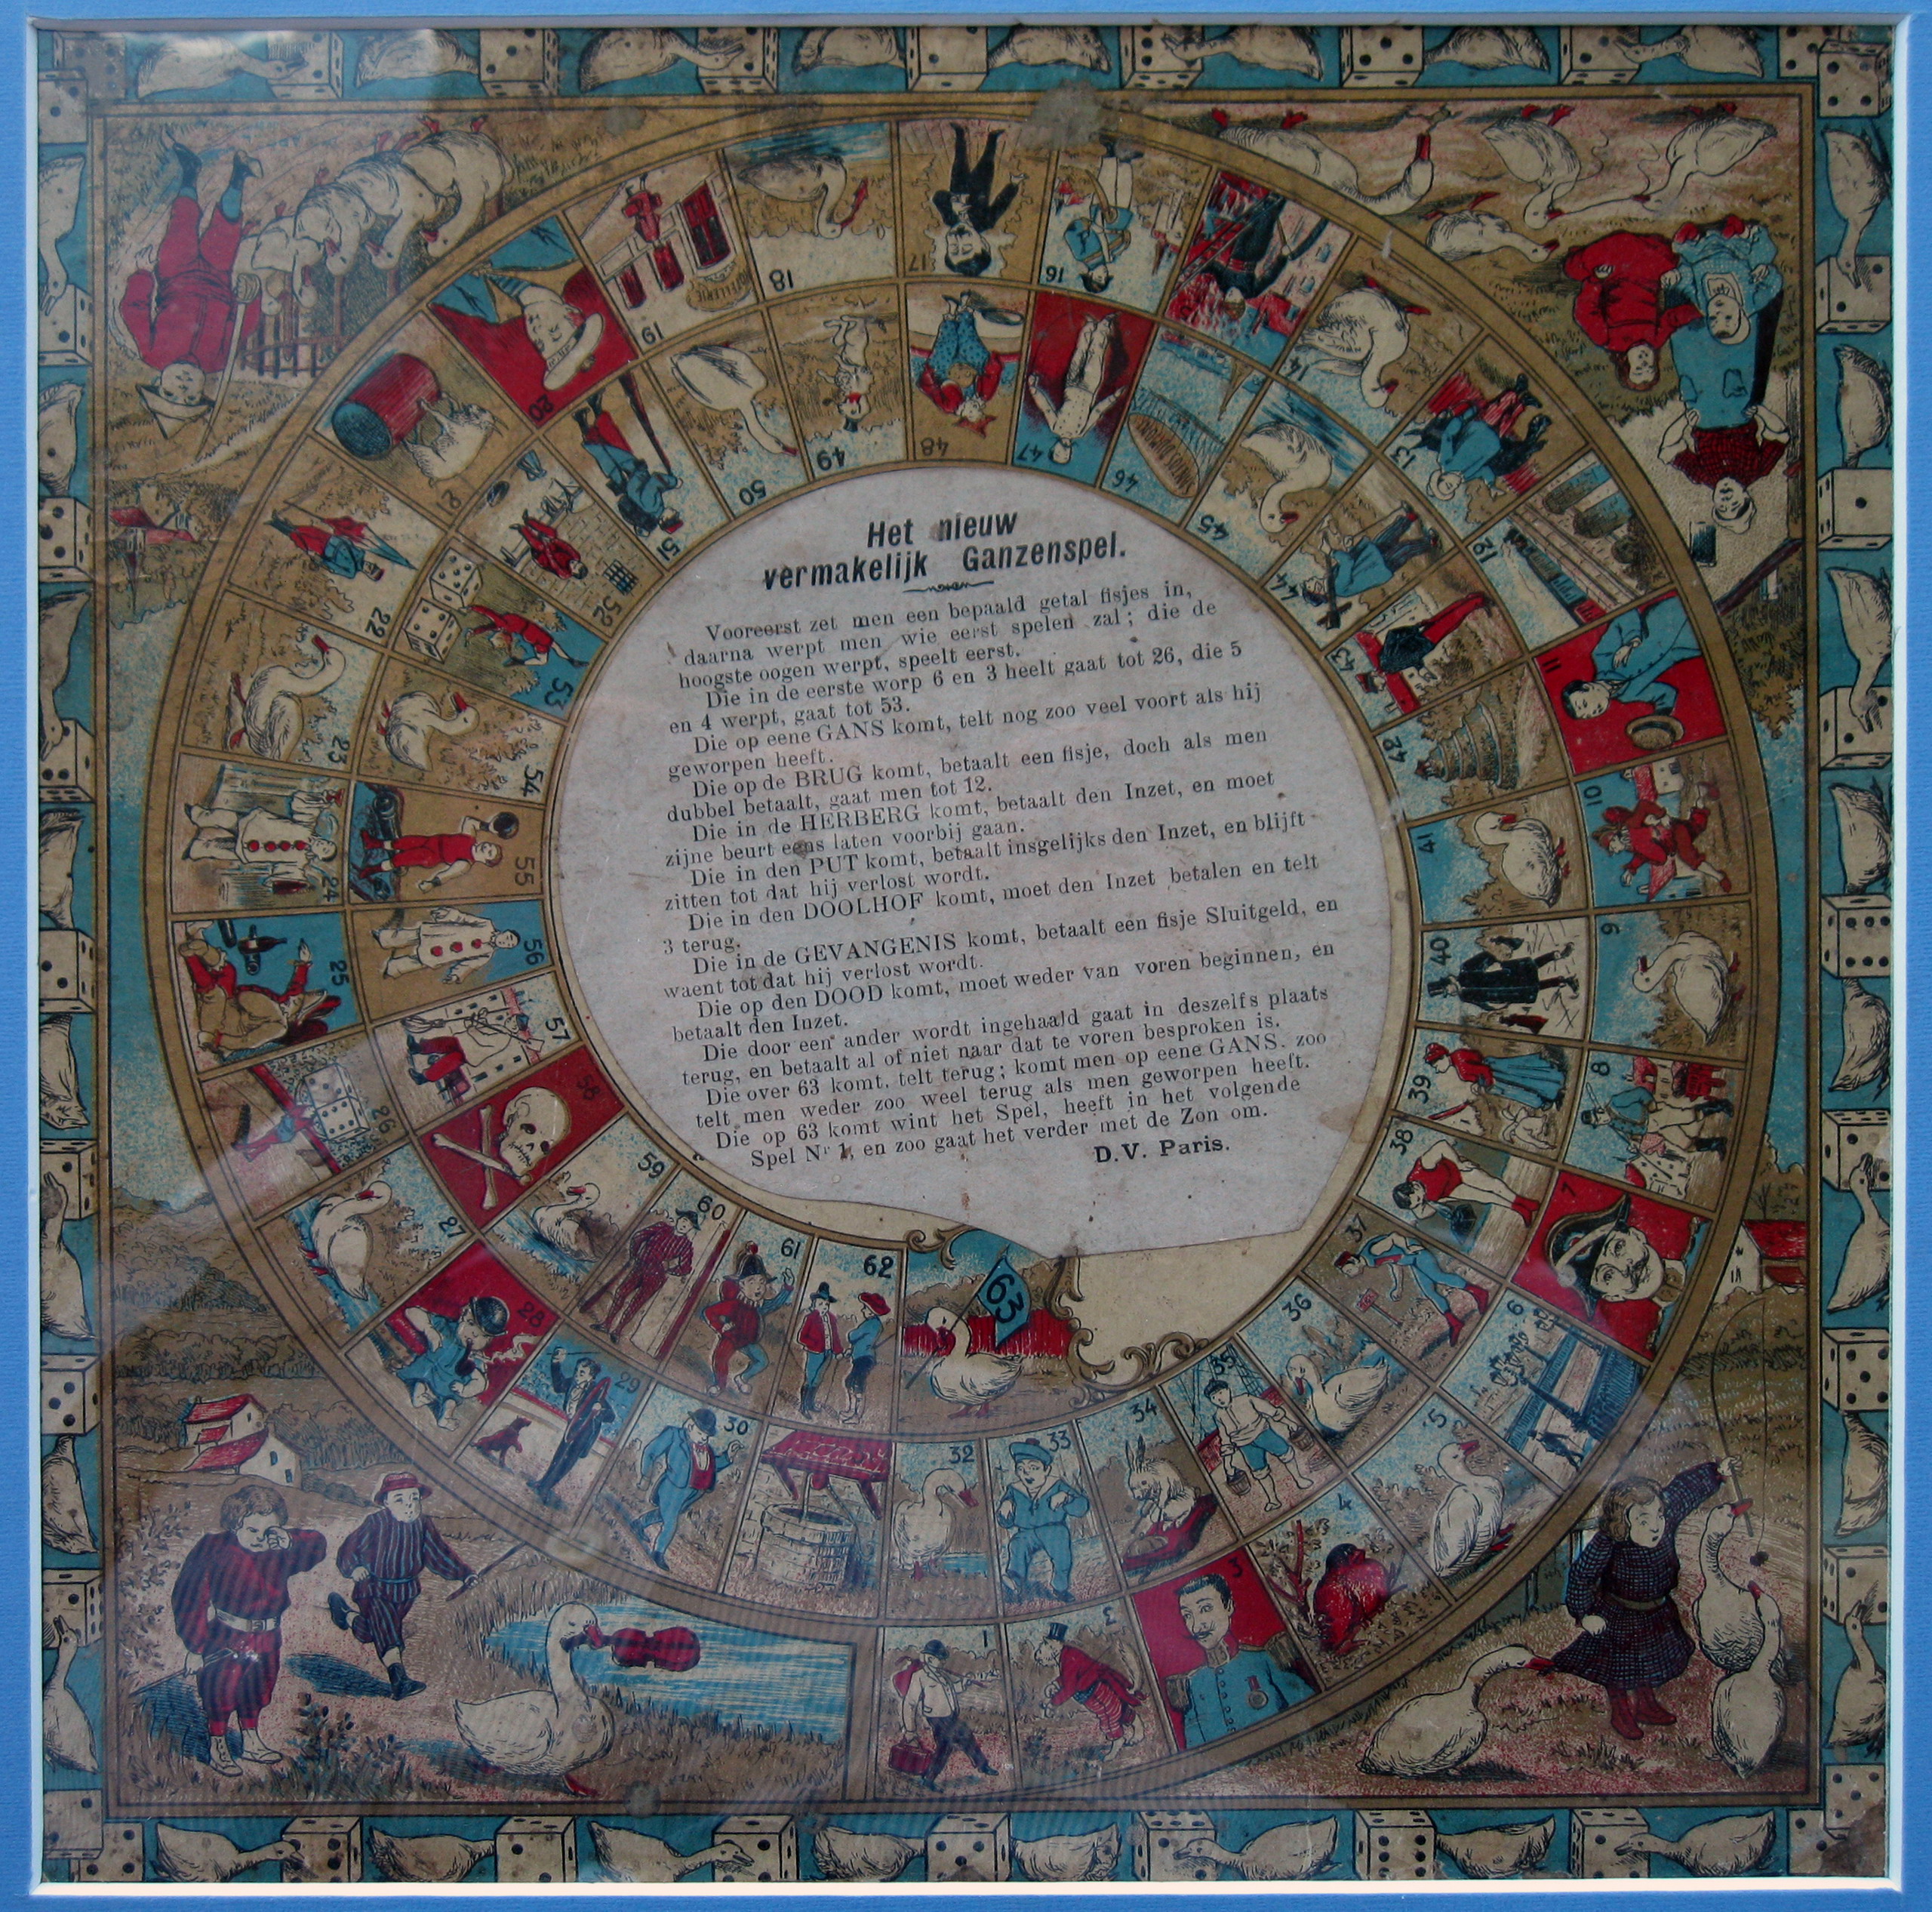 Het nieuw
vermakelijk Ganzenspel.
Vooreerst zet men een bepaald getal fisjes in,
daarna werpt men wie eerst spelen zal; die de
hoogste oogen werpt, speelt eerst.
Die in de eerste worp 6 en 3 heelt gaat tot 26, die 5
en 4 werpt, gaat tot 53.
Die op eene GANS komt, telt nog zoo veel voort als hij
geworpen heeft.
Die op de BRUG komt, betaalt een fisje, doch als men
dubbel betaalt, gaat men tot 12.
Die in de HERBERG komt, betaalt den Inzet, en moet
zijne beurt eens laten voorbij gaan.
Die in den PUT komt, betaalt insgelijks den Inzet, en blijft
zitten tot dat hij verlost wordt.
Die in den DOOLHOF komt, moet den Inzet betalen en telt
3 terug.
Die in de GEVANGENIS komt, betaalt een fisje Sluitgeld, en
waent tot dat hij verlost wordt.
Die op den DOOD komt, moet weder van voren beginnen, en
betaalt den Inzet.
Die door een ander wordt ingehaald gaat in deszelfs plaats
terug, en betaalt al of niet naar dat te voren besproken is.
Die over 63 komt, telt terug; komt men op eene GANS, zoo
telt men weder zoo weel terug als men geworpen heeft.
Die op 63 komt wint het Spel, heeft in het volgende
Spel Nr 1, en zoo gaat het verder met de Zon om.
D.V. Paris.
1
2
3
4
5
6
7
8
9
10
11
12
13
14
16
17
18
19
20
21
22
23
24
25
26
27
28
29
30
32
33
34
35
36
37
38
39
40
41
42
43
44
45
46
47
48
49
50
51
52
53
54
55
56
57
58
59
60
61
62
63